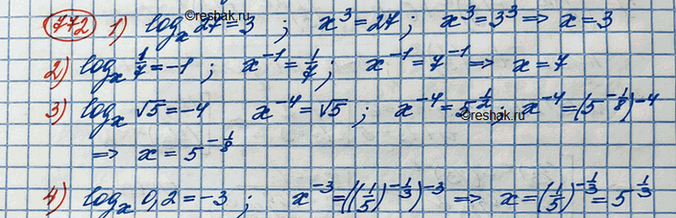 772 1) logₓ 27 = 3 ; x³ = 27 ; x³ = 3³ => x = 3
2) logₓ 1/7 = -1 ; x⁻¹ = 1/7 ; x⁻¹ = 7⁻¹ => x = 7
3) logₓ √5 = -4 x⁻⁴ = √5 ; x⁻⁴ = 5^(1/2) ; x⁻⁴ = (5^(-1/8))⁻⁴
=> x = 5^(-1/8)
4) logₓ 0,2 = -3 ; x⁻³ = ((1/5)^(-1/3))⁻³ => x = (1/5)^(-1/3) = 5^(1/3)
©reshak.ru